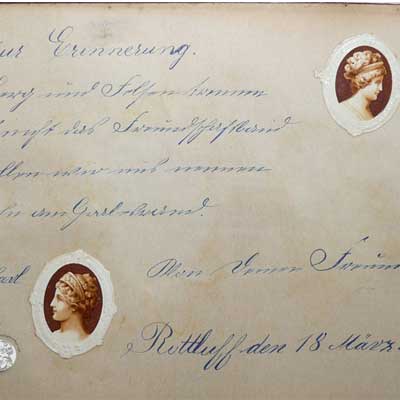 ur Erinnerung.
berg und Felsen trennen
nicht das Freundschaftsband
llen wir uns nennen
am Grabesrand.
Karl
Von Deiner Freun
Rottluff den 18 März.